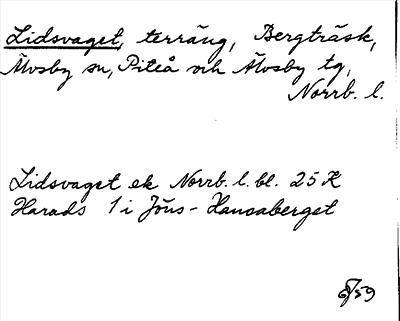 Lidsvaget, terräng, Bergträsk,
Älvsby sn, Piteå och Älvsby tg,
Norrb. l.
Lidsvaget ek Norrb. l. bl. 25 K
Harads 1 i Jöns-Hansaberget
59